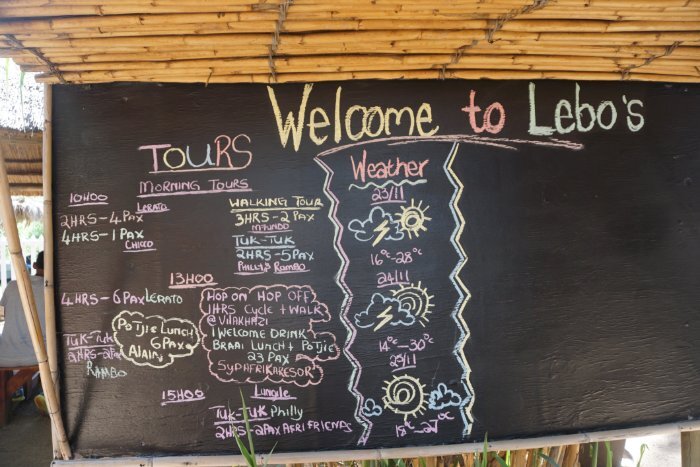 Welcome to Lebo's
TOURS
MORNING TOURS
10H00
LERATO
2HRS-4 PAX
4HRS-1 PAX
CHICCO
WALKING TOUR
3HRS-2 PAX
MFUNDO
TUK-TUK
2HRS-5PAX
PHILLY & RAMBO
13H00
4HRS-6PAX LERATO
TUK-TUK
2HRS-2PAX
RAMBO
POTJIE LUNCH
6PAX
Alain
HOP ON HOP OFF
1HRS Cycle + WALK
@VILAKHAZI
1 WELCOME DRINK
BRAAI LUNCH + POTJIE
23 PAX
15H00
Lungile
TUK-TUK Philly
2HRS-2PAX AFRIFRIENDS
Weather
23/11
16°c-28°c
24/11
14°c-30°c
25/11
18°c-